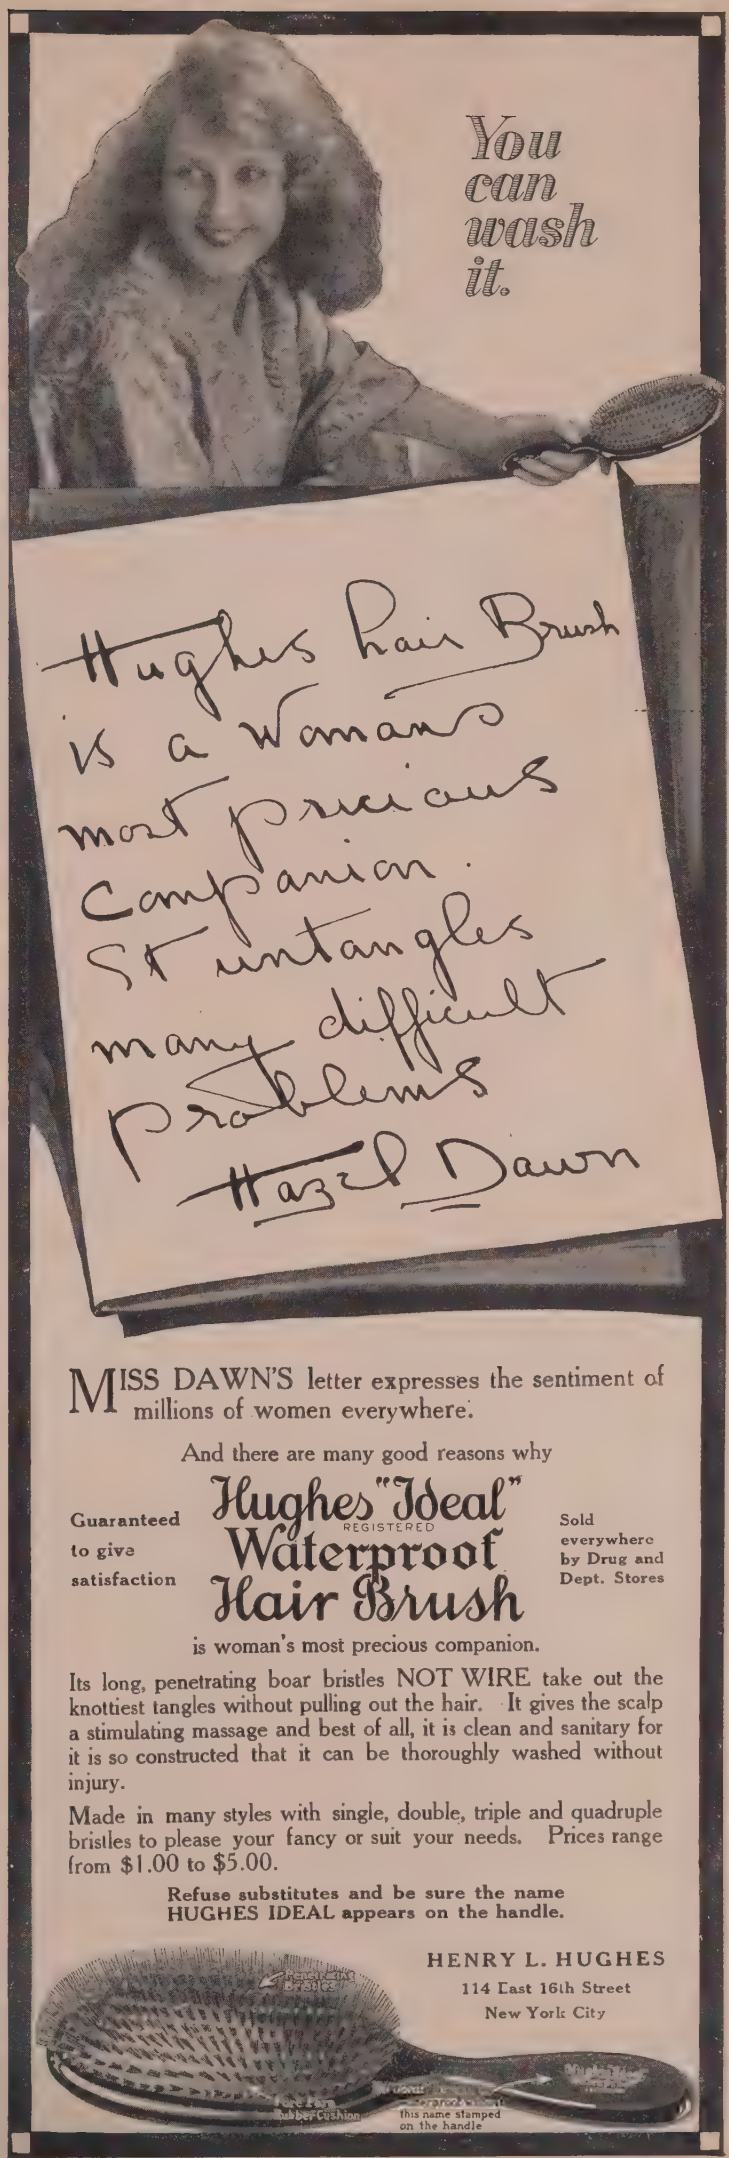 You
can
wash
it.
Hughes hair Brush
is a womans
most precious
Companion.
It untangles
many difficult
problems
Hazel Dawn
MISS DAWN'S letter expresses the sentiment of
millions of women everywhere.
And there are many good reasons why
Guaranteed
to give
satisfaction
Hughes "Ideal"
REGISTERED
Waterproof
Hair Brush
Sold
everywhere
by Drug and
Dept. Stores
is woman's most precious companion.
Its long, penetrating boar bristles NOT WIRE take out the
knottiest tangles without pulling out the hair. It gives the scalp
a stimulating massage and best of all, it is clean and sanitary for
it is so constructed that it can be thoroughly washed without
injury.
Made in many styles with single, double, triple and quadruple
bristles to please your fancy or suit your needs. Prices range
from $1.00 to $5.00.
Refuse substitutes and be sure the name
HUGHES IDEAL appears on the handle.
HENRY L. HUGHES
114 East 16th Street
New York City
Penetrating
Bristles
Rubber Cushion
this name stamped
on the handle